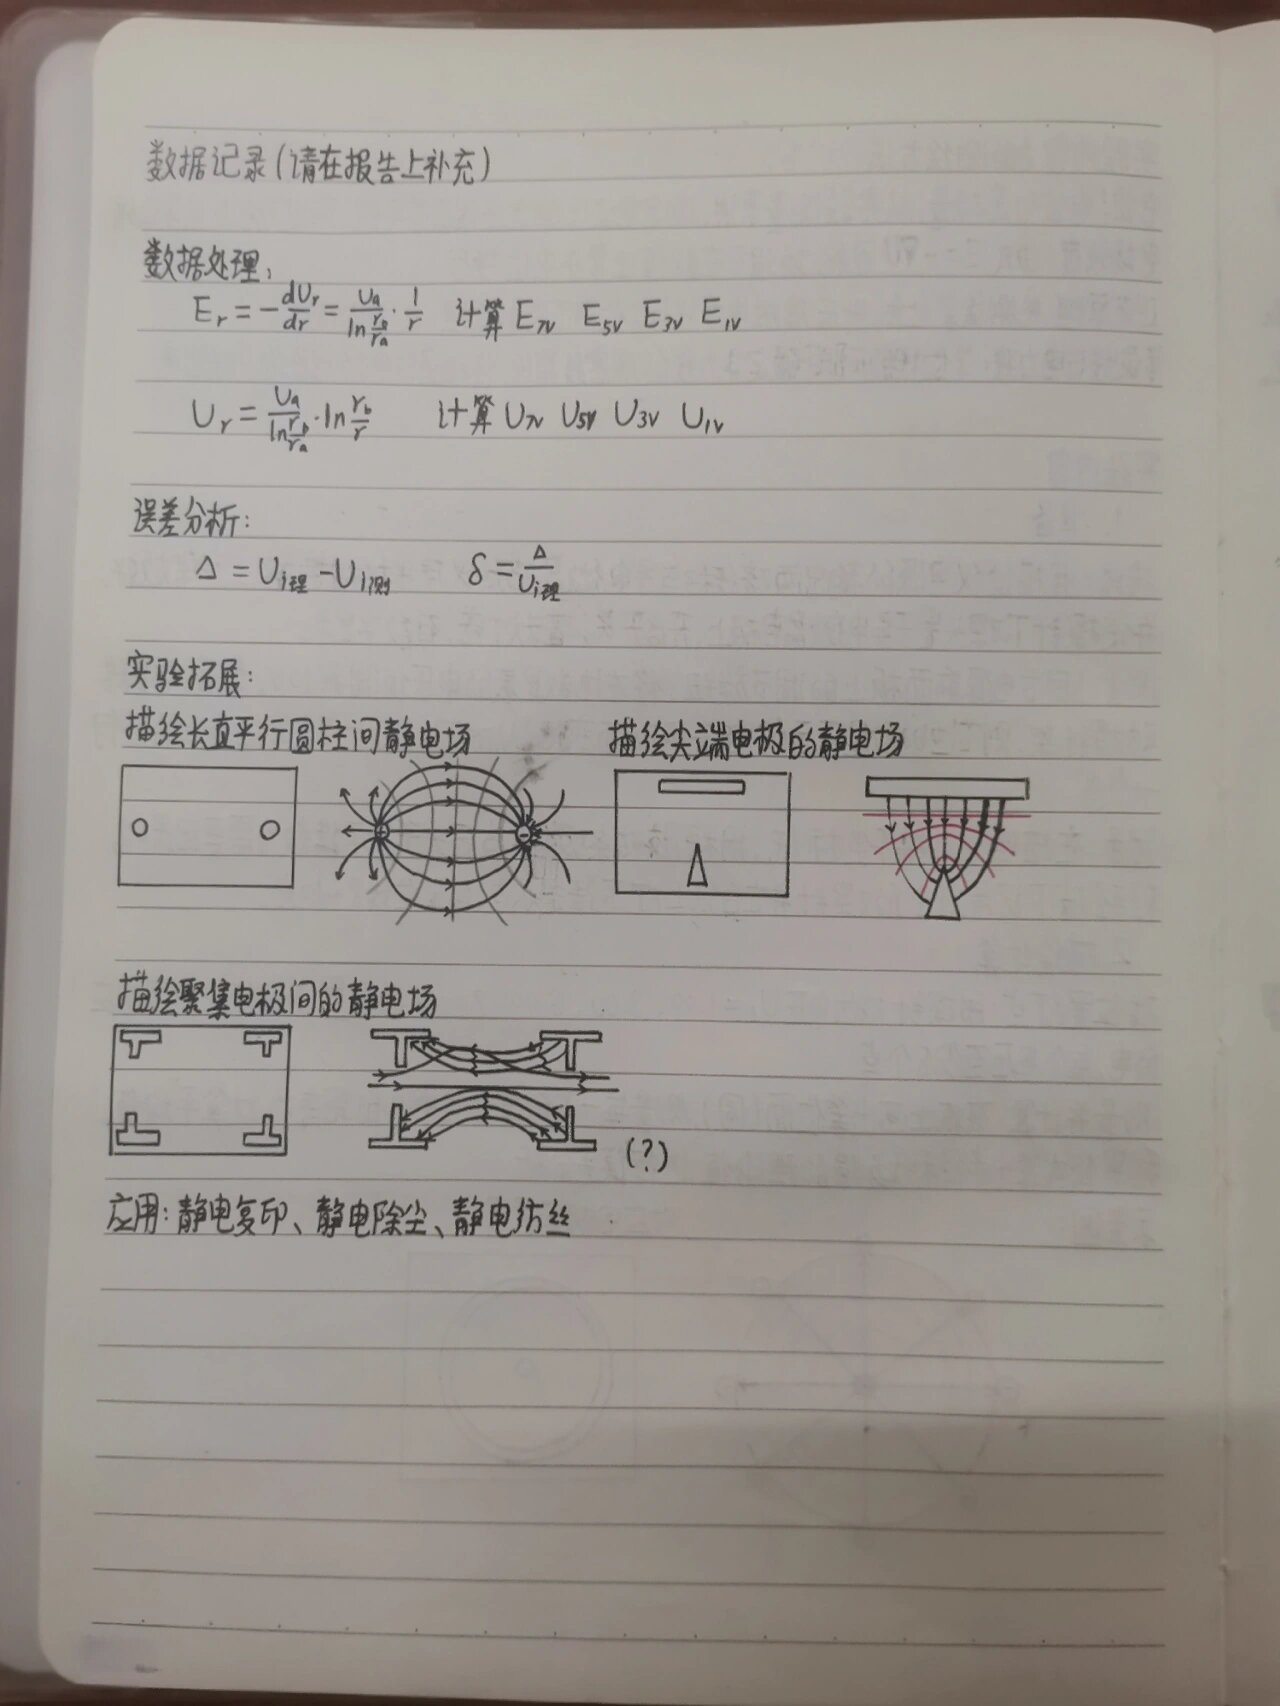 数据记录(请在报告上补充)
数据处理:
E_r = -dU_r/dr = U_a/ln(r_b/r_a) · 1/r 计算 E_7V E_5V E_3V E_1V
U_r = U_a/ln(r_b/r_a) · ln r_b/r 计算 U_7V U_5V U_3V U_1V
误差分析:
Δ = U_i理 - U_i测 δ = Δ/U_i理
实验拓展:
描绘长直平行圆柱间静电场 描绘尖端电极的静电场
描绘聚集电极间的静电场
(?)
应用:静电复印、静电除尘、静电纺丝